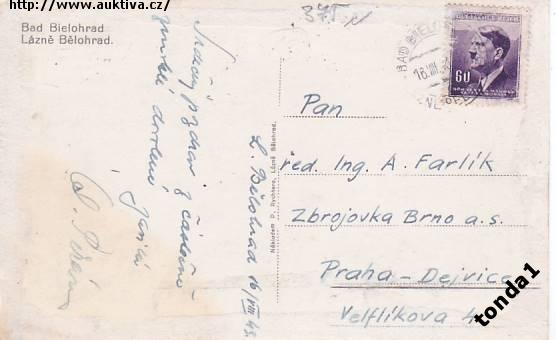 http://www.auktiva.cz/
Bad Bielohrad
Lázně Bělohrad.
375
Srdečný pozdrav z
dovolené
L. Bělohrad 16/VIII 43.
Nákladem P. Rychtera, Lázně Bělohrad.
BAD BIELOHRAD
60
Pan
řed. Ing. A. Farlík
Zbrojovka Brno a.s.
Praha-Dejvice
Velflíkova 4
tonda1